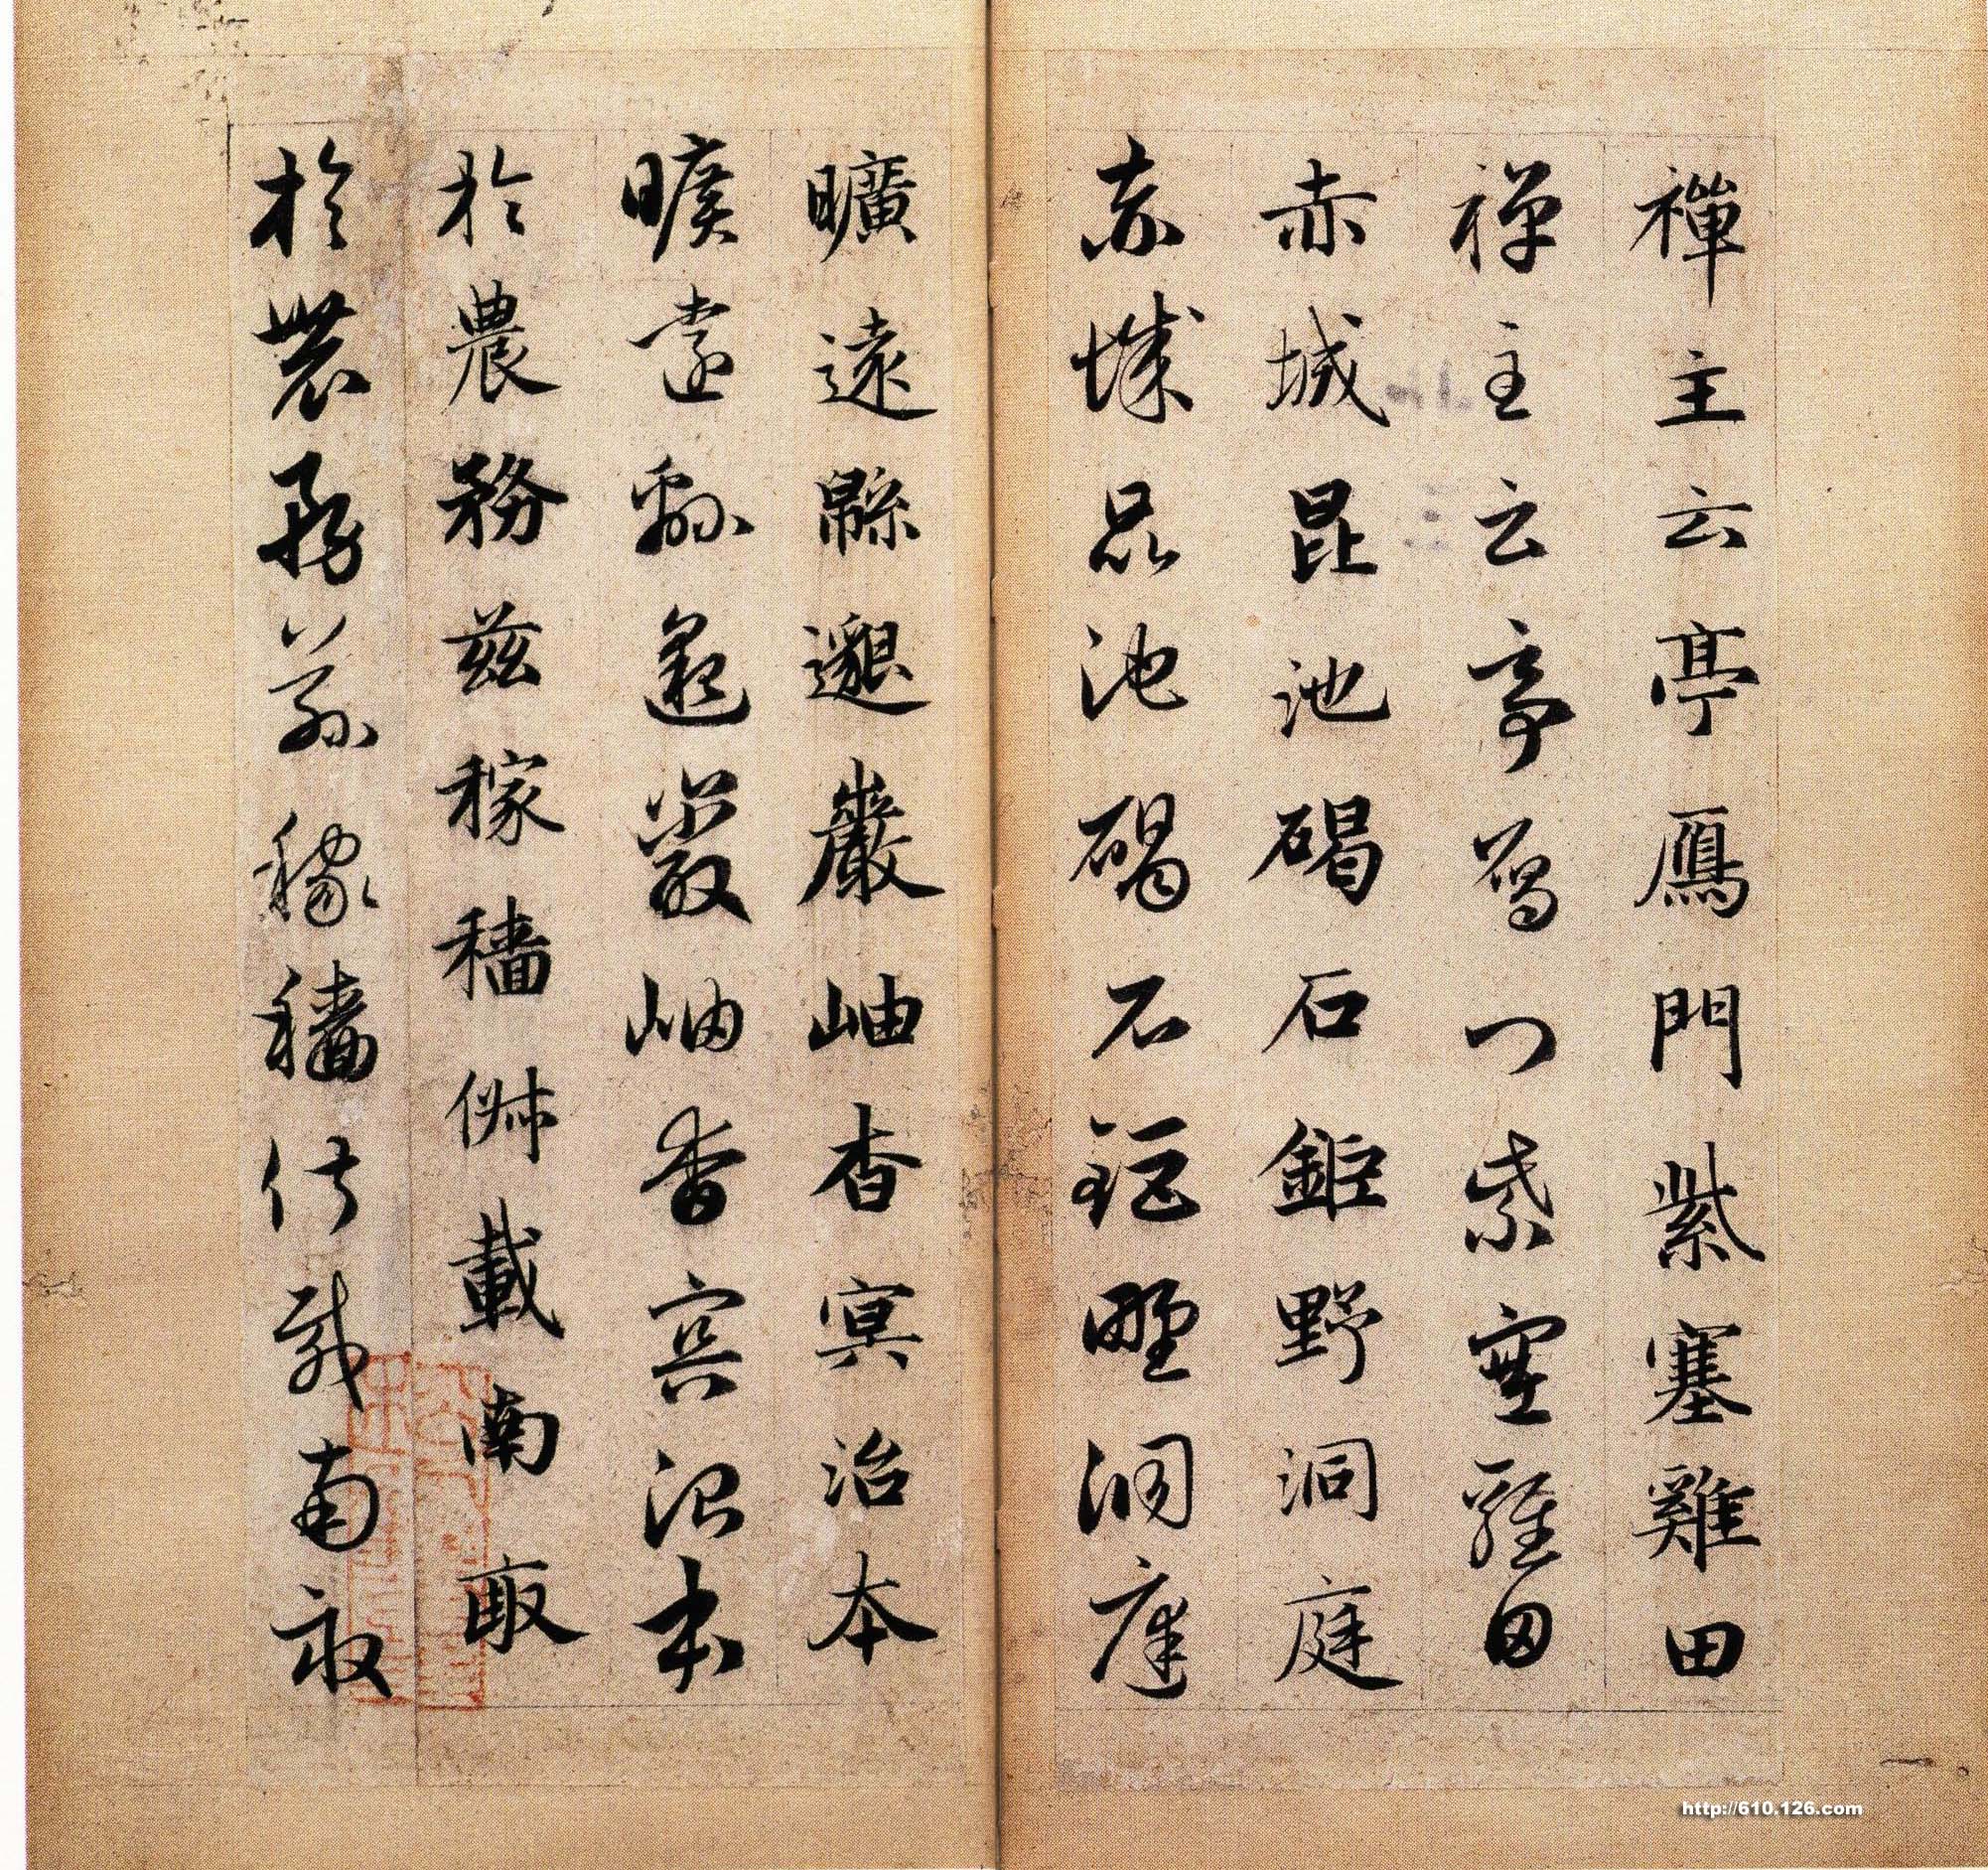 禪主云亭鴈門紫塞雞田
禪主云亭鴈門紫塞雞田
赤城昆池碣石鉅野洞庭
赤城昆池碣石鉅野洞庭
曠遠緜邈巖岫杳冥治本
曠遠緜邈巖岫杳冥治本
於農務茲稼穡俶載南畝
於農務茲稼穡俶載南畝
http://610.126.com